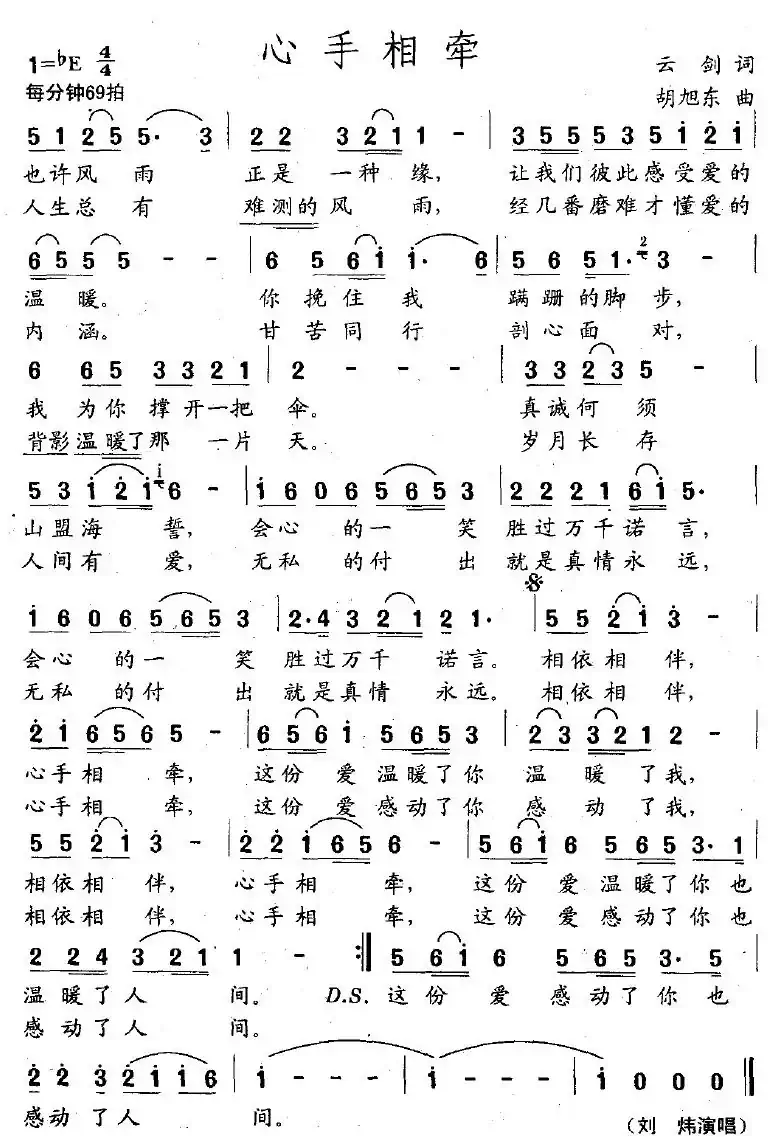 心手相牵
1=♭E 4/4
云剑词
每分钟69拍
胡旭东曲
5 1 2 5 5· 3 | 2 2 3 2 1 1 - | 3 5 5 5 3 5 i 2 i
也许风雨 正是一种缘, 让我们彼此感受爱的
人生总有 难测的风雨, 经几番磨难才懂爱的
6 5 5 5 - - | 6 5 6 i i· 6 | 5 6 5 1· 2 3 -
温暖。 你挽住我 蹒跚的脚步,
内涵。 甘苦同行 剖心面对,
6 6 5 3 3 2 1 | 2 - - - | 3 3 2 3 5 -
我为你撑开一把伞。 真诚何须
背影温暖了那一片天。 岁月长存
5 3 i 2 i i 6 - | i 6 0 6 5 6 5 3 | 2 2 2 1 6 i 5·
山盟海誓, 会心的一笑 胜过万千诺言,
人间有爱, 无私的付出 就是真情永远,
i 6 0 6 5 6 5 3 | 2·4 3 2 1 2 1· | 5 5 2 i 3 -
会心的一笑 胜过万千诺言。 相依相伴,
无私的付出 就是真情永远。 相依相伴,
2 i 6 5 6 5 - | 6 5 6 i 5 6 5 3 | 2 2 3 3 2 1 2 -
心手相牵, 这份爱温暖了你 温暖了我,
心手相牵, 这份爱感动了你 感动了我,
5 5 2 i 3 - | 2 2 i 6 5 6 - | 5 6 i 6 5 6 5 3· 1
相依相伴, 心手相牵, 这份爱温暖了你也
相依相伴, 心手相牵, 这份爱感动了你也
2 2 4 3 2 1 1 - :| 5 6 i 6 5 6 5 3· 5
温暖了人间。 D.S. 这份爱感动了你也
感动了人间。
2 2 3 2 i i 6 | i - - - | i - - - | i 0 0 0 ||
感动了人间。
(刘炜演唱)